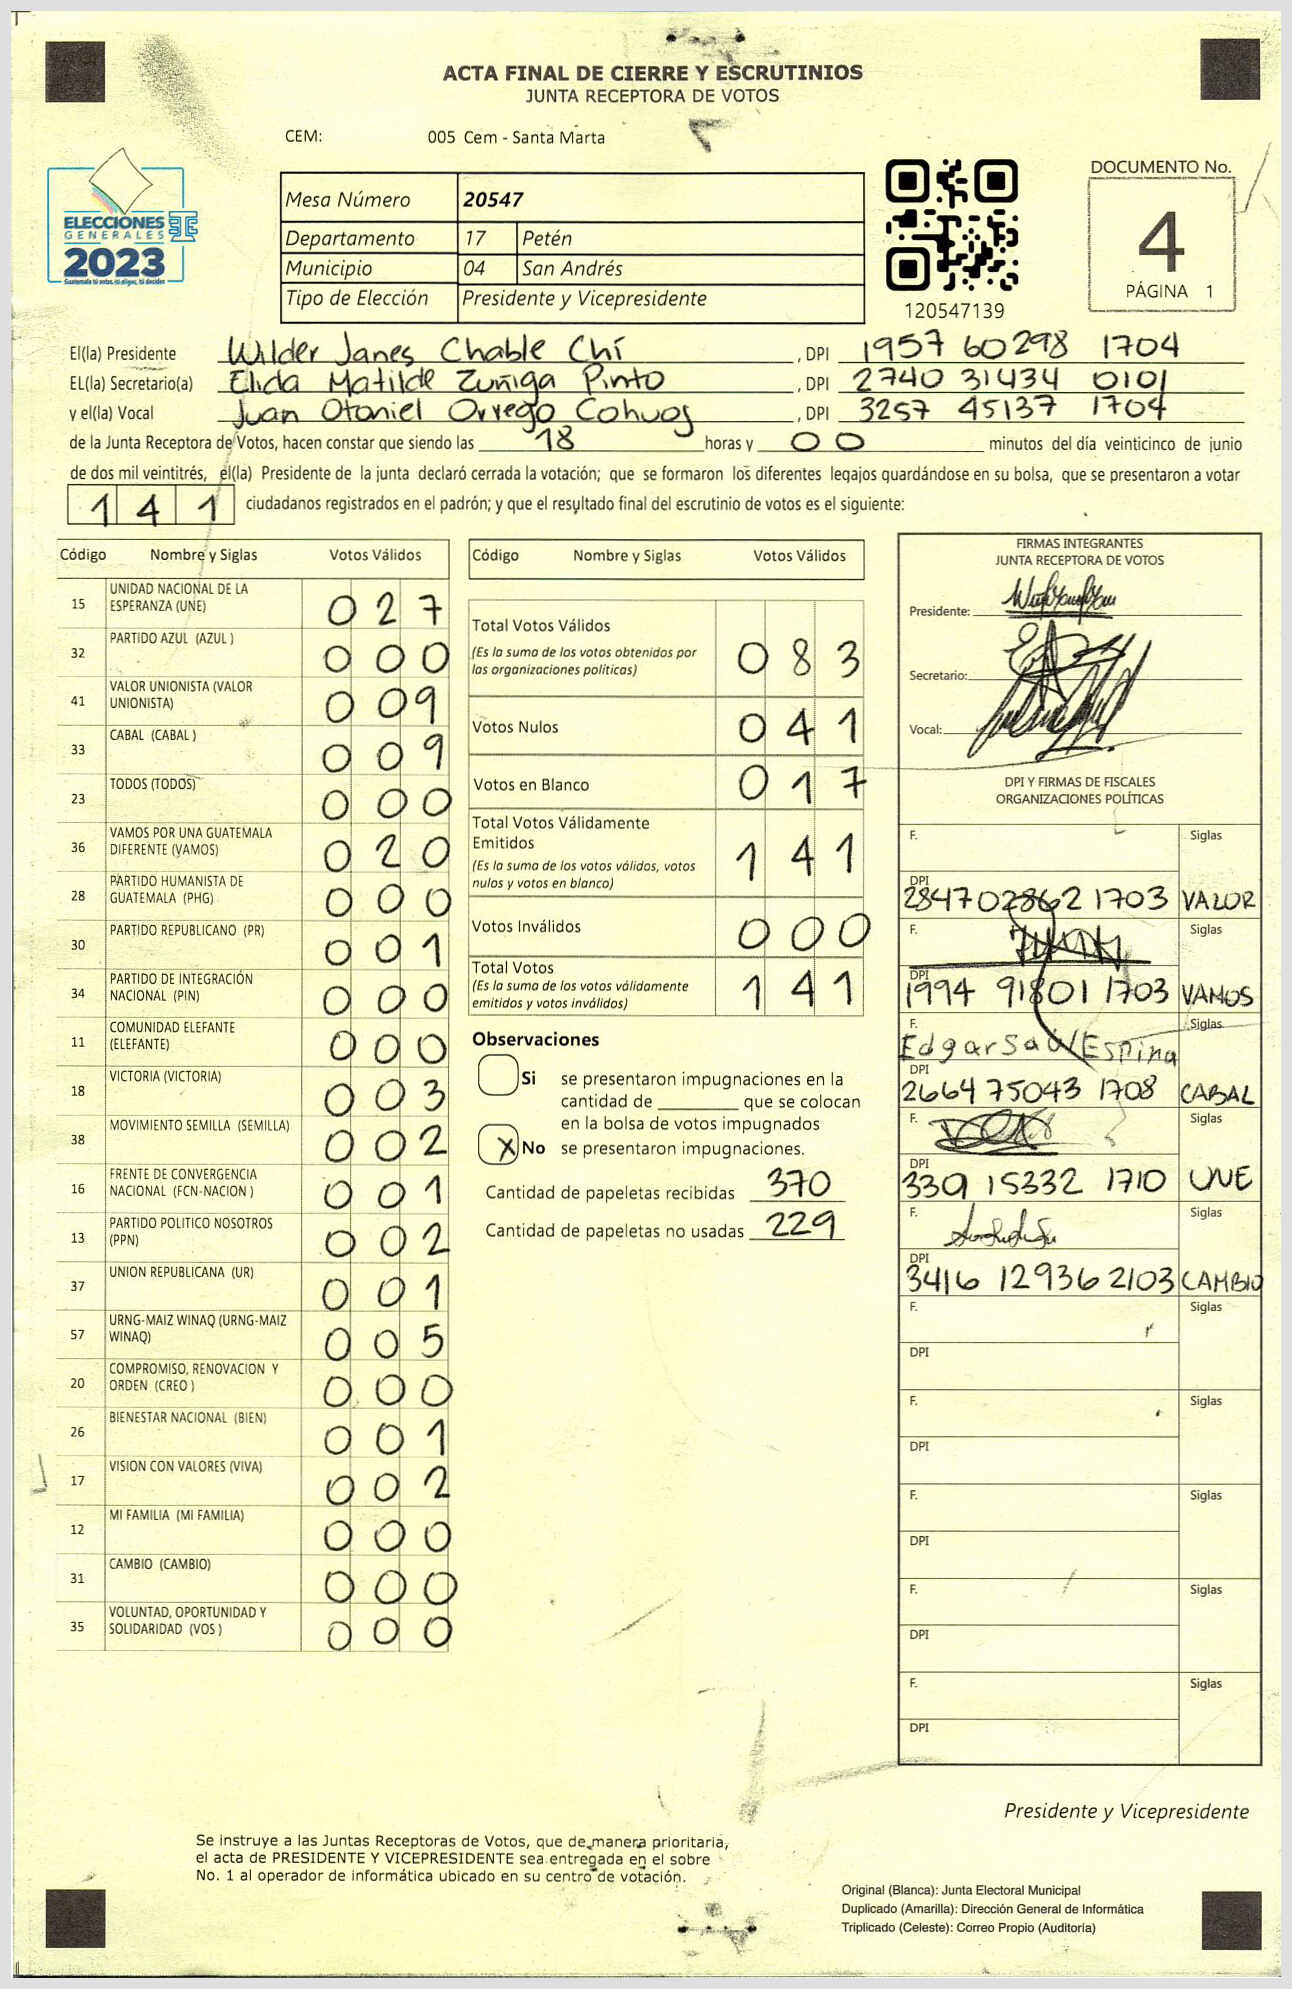 ACTA FINAL DE CIERRE Y ESCRUTINIOS
JUNTA RECEPTORA DE VOTOS
CEM: 005 Cem - Santa Marta
ELECCIONES
GENERALES
2023
Mesa Número 20547
Departamento 17 Petén
Municipio 04 San Andrés
Tipo de Elección Presidente y Vicepresidente
120547139
DOCUMENTO No.
4
PÁGINA 1
El(la) Presidente Wilder Janes Chable Chí, DPI 1957 60298 1704
EL(la) Secretario(a) Elida Matilde Zuñiga Pinto, DPI 2740 31434 0101
y el(la) Vocal Juan Otoniel Orrego Cohuoj, DPI 3257 45137 1704
de la Junta Receptora de Votos, hacen constar que siendo las 18 horas y 00 minutos del día veinticinco de junio
de dos mil veintitrés, el(la) Presidente de la junta declaró cerrada la votación; que se formaron los diferentes legajos guardándose en su bolsa, que se presentaron a votar
141 ciudadanos registrados en el padrón; y que el resultado final del escrutinio de votos es el siguiente:
Código Nombre y Siglas Votos Válidos
15 UNIDAD NACIONAL DE LA ESPERANZA (UNE) 027
32 PARTIDO AZUL (AZUL ) 000
41 VALOR UNIONISTA (VALOR UNIONISTA) 009
33 CABAL (CABAL ) 009
23 TODOS (TODOS) 000
36 VAMOS POR UNA GUATEMALA DIFERENTE (VAMOS) 020
28 PARTIDO HUMANISTA DE GUATEMALA (PHG) 000
30 PARTIDO REPUBLICANO (PR) 001
34 PARTIDO DE INTEGRACIÓN NACIONAL (PIN) 000
11 COMUNIDAD ELEFANTE (ELEFANTE) 000
18 VICTORIA (VICTORIA) 003
38 MOVIMIENTO SEMILLA (SEMILLA) 002
16 FRENTE DE CONVERGENCIA NACIONAL (FCN-NACION ) 001
13 PARTIDO POLITICO NOSOTROS (PPN) 002
37 UNION REPUBLICANA (UR) 001
57 URNG-MAIZ WINAQ (URNG-MAIZ WINAQ) 005
20 COMPROMISO, RENOVACION Y ORDEN (CREO ) 000
26 BIENESTAR NACIONAL (BIEN) 001
17 VISION CON VALORES (VIVA) 002
12 MI FAMILIA (MI FAMILIA) 000
31 CAMBIO (CAMBIO) 000
35 VOLUNTAD, OPORTUNIDAD Y SOLIDARIDAD (VOS ) 000
Código Nombre y Siglas Votos Válidos
Total Votos Válidos 083
(Es la suma de los votos obtenidos por
las organizaciones políticas)
Votos Nulos 041
Votos en Blanco 017
Total Votos Válidamente
Emitidos 141
(Es la suma de los votos válidos, votos
nulos y votos en blanco)
Votos Inválidos 000
Total Votos 141
(Es la suma de los votos válidamente
emitidos y votos inválidos)
Observaciones
Si se presentaron impugnaciones en la
cantidad de ________ que se colocan
en la bolsa de votos impugnados
X No se presentaron impugnaciones.
Cantidad de papeletas recibidas 370
Cantidad de papeletas no usadas 229
FIRMAS INTEGRANTES
JUNTA RECEPTORA DE VOTOS
Presidente:
Secretario:
Vocal:
DPI Y FIRMAS DE FISCALES
ORGANIZACIONES POLÍTICAS
F. Siglas
DPI 2847028621703 VALOR
F. Siglas
DPI 1994 91801 1703 VAMOS
F. Edgar Saúl Espina Siglas
DPI 2664 75043 1708 CABAL
F. Siglas
DPI 339 15332 1710 UNE
F. Siglas
DPI 3416 12936 2103 CAMBIO
F. Siglas
DPI
F. Siglas
DPI
F. Siglas
DPI
F. Siglas
DPI
F. Siglas
DPI
Presidente y Vicepresidente
Se instruye a las Juntas Receptoras de Votos, que de manera prioritaria,
el acta de PRESIDENTE Y VICEPRESIDENTE sea entregada en el sobre
No. 1 al operador de informática ubicado en su centro de votación.
Original (Blanca): Junta Electoral Municipal
Duplicado (Amarilla): Dirección General de Informática
Triplicado (Celeste): Correo Propio (Auditoría)